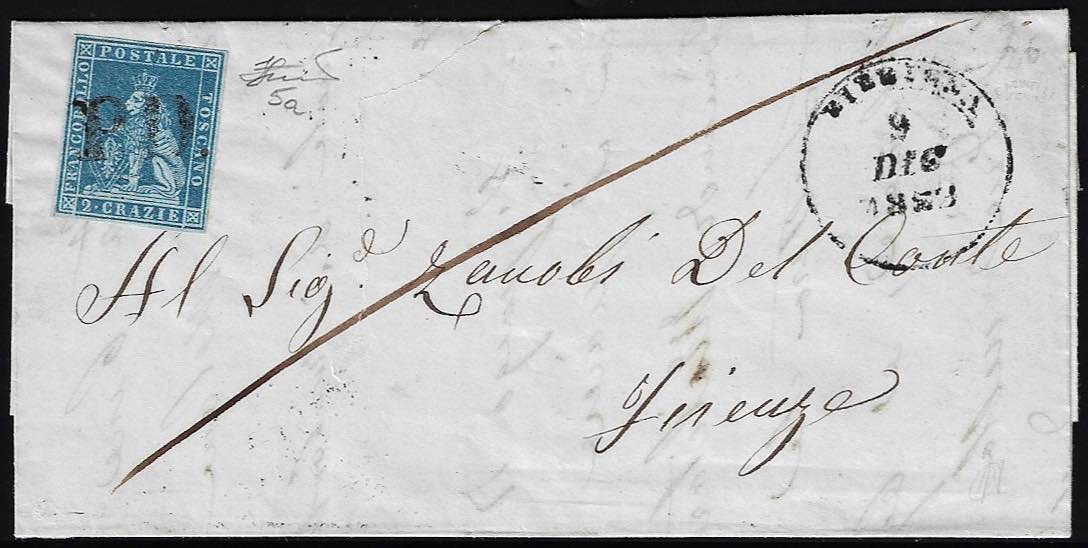 POSTALE
FRANCOBOLLO
TOSCANO
2 · CRAZIE
P.D.
5a
9
DIC
1853
Al Sig.e Zanobi Del Conte
Firenze